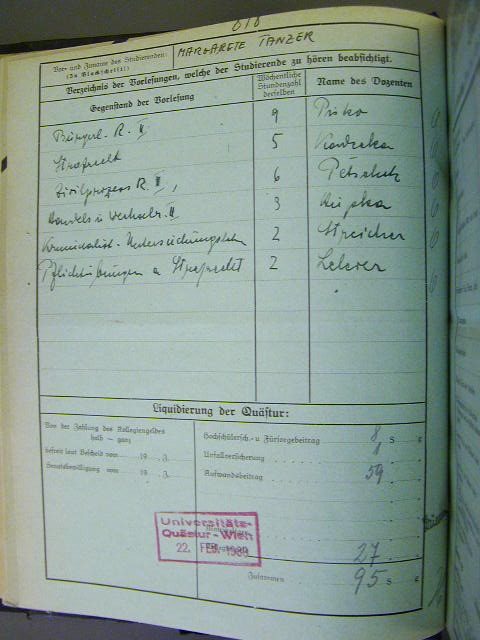 Vor- und Zuname des Studierenden: MARGARETE TANZER
(In Blockschrift!)
Verzeichnis der Vorlesungen, welche der Studierende zu hören beabsichtigt.
Gegenstand der Vorlesung Wöchentliche Stundenzahl derselben Name des Dozenten
Bürgerl. R. II 9 Priko
Strafrecht 5
Zivilprozess R. II, 6 Petschek
Handels u Wechselr. II 3 Hupka
Kriminalist. Untersuchungslehre 2 Streicher
Pflichtübungen a Strafrecht 2 Lelewer
Liquidierung der Quästur:
Von der Zahlung des Kollegiengeldes
halb — ganz
befreit laut Bescheid vom 19 . Z.
Senatsbewilligung vom 19 . Z.
Hochschülersch.- u. Fürsorgebeitrag 8 S g
Unfallversicherung 1
Aufwandsbeitrag 59
Universitäts-
Quästur-Wien
22. FEB. 1938
27
Zusammen 95 S g